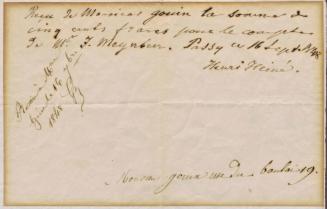 Reçu de Monsieur Gouin la somme de
cinq cents francs pour le compte
de Mr J. Meynier. Passy ce 16 Sept 1848
Henri Heine.
16
1848
Monsieur Gouin rue du 19.